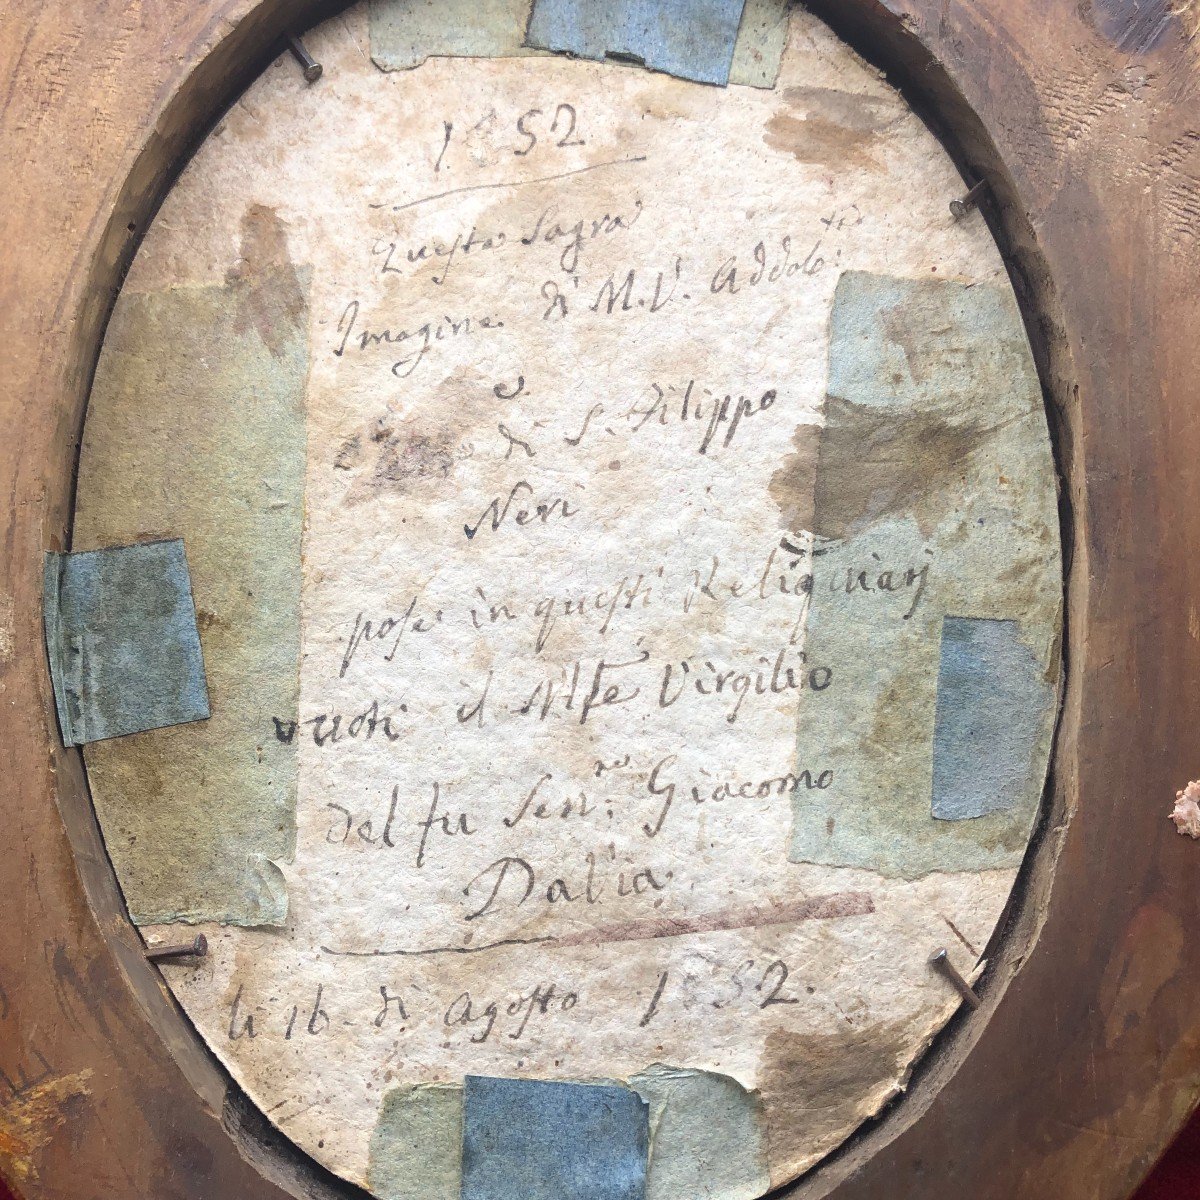 1852
Questa Sagra
Imagine di M. V. Addolo:
e
di S. Filippo
Neri
pose in questi Reliquiarj
vuoti il Virgilio
del fu Sen:re Giacomo
Dalia
li 16 di Agosto 1852.